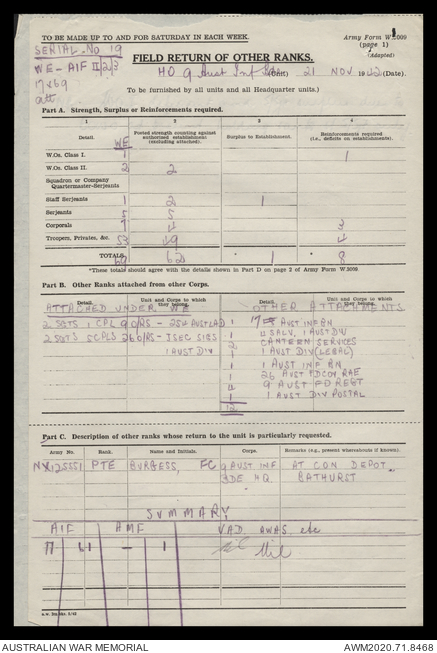 TO BE MADE UP TO AND FOR SATURDAY IN EACH WEEK.
Army Form W.3009
(page 1)
(Adapted)
SERIAL No 19
WE - AIF II/2/3
FIELD RETURN OF OTHER RANKS.
HQ 9 Aust Inf (Unit) 21 NOV 1942 (Date).
To be furnished by all units and all Headquarter units.)
Part A. Strength, Surplus or Reinforcements required.
1 2 3 4
Detail. WE Posted strength counting against authorized establishment (excluding attached). Surplus to Establishment. Reinforcements required (i.e., deficits on establishment).
W.Os. Class I. 1 1
W.Os. Class II. 2 2
Squadron or Company
Quartermaster-Serjeants
Staff Serjeants 1 2 1
Serjeants 5 5
Corporals 7 4 3
Troopers, Privates, &c. 53 49 4
TOTALS 69 62 * 1 * 8
*These totals should agree with the details shown in Part D on page 2 of Army Form W.3009
Part B. Other Ranks attached from other Corps.
Detail. Unit and Corps to which they belong. Detail. Unit and Corps to which they belong.
ATTACHED UNDER WE OTHER ATTACHMENTS
2 SGTS 1 CPL 9 O/RS - 25 AUST LAD 1 AUST INF BN
2 SGTS 5 CPLS 26 O/RS - J SEC SIGS 1 SALV, 1 AUST DIV
1 AUST DIV 2 CANTEEN SERVICES
1 1 AUST DIV (LEGAL)
1 1 AUST INF BN
1 26 AUST FD COY RAE
4 9 AUST FD REGT
1 1 AUST DIV POSTAL
12
Part C. Description of other ranks whose return to the unit is particularly requested.
Army No. Rank. Name and Initials. Corps. Remarks (e.g., present whereabouts if known).
NX125551 PTE BURGESS, FC 9 AUST INF AT CON DEPOT
BDE HQ. BATHURST
SUMMARY
AIF AMF VAD AWAS etc
77 61 — 1 Nil
AUSTRALIAN WAR MEMORIAL AWM2020.71.8468